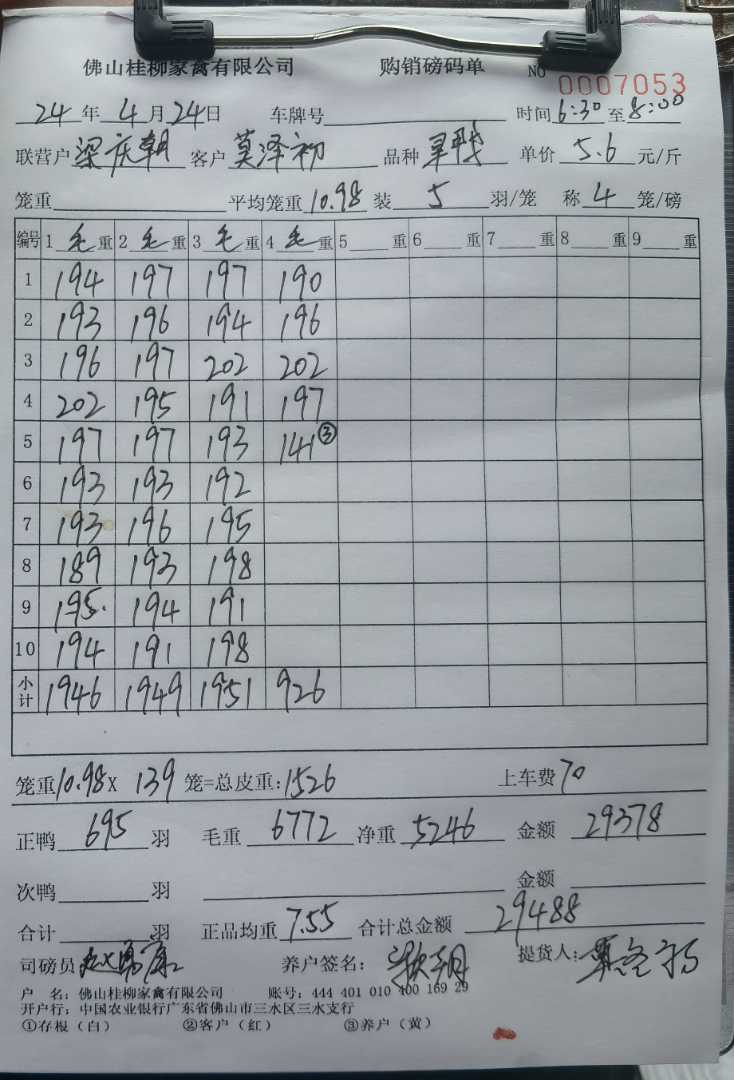 佛山桂柳家禽有限公司 购销磅码单 NO 0007053
24年4月24日 车牌号 时间6:30至8:00
联营户梁庆朝 客户莫泽初 品种 单价5.6元/斤
笼重 平均笼重10.98 装5羽/笼 称4笼/磅
编号 1毛重 2毛重 3毛重 4毛重 5重 6重 7重 8重 9重
1 194 197 197 190
2 193 196 194 196
3 196 197 202 202
4 202 195 191 197
5 197 197 193 141③
6 193 193 192
7 193 196 195
8 189 193 198
9 195 194 191
10 194 191 198
小计 1946 1949 1951 926
笼重10.98X 139笼=总皮重:1526 上车费70
正鸭695羽 毛重6772 净重5246 金额29378
次鸭 羽 金额
合计 羽 正品均重7.55 合计总金额29488
司磅员 养户签名: 提货人:
户 名: 佛山桂柳家禽有限公司 账号: 444 401 010 400 169 29
开户行: 中国农业银行广东省佛山市三水区三水支行
①存根(白) ②客户(红) ③养户(黄)